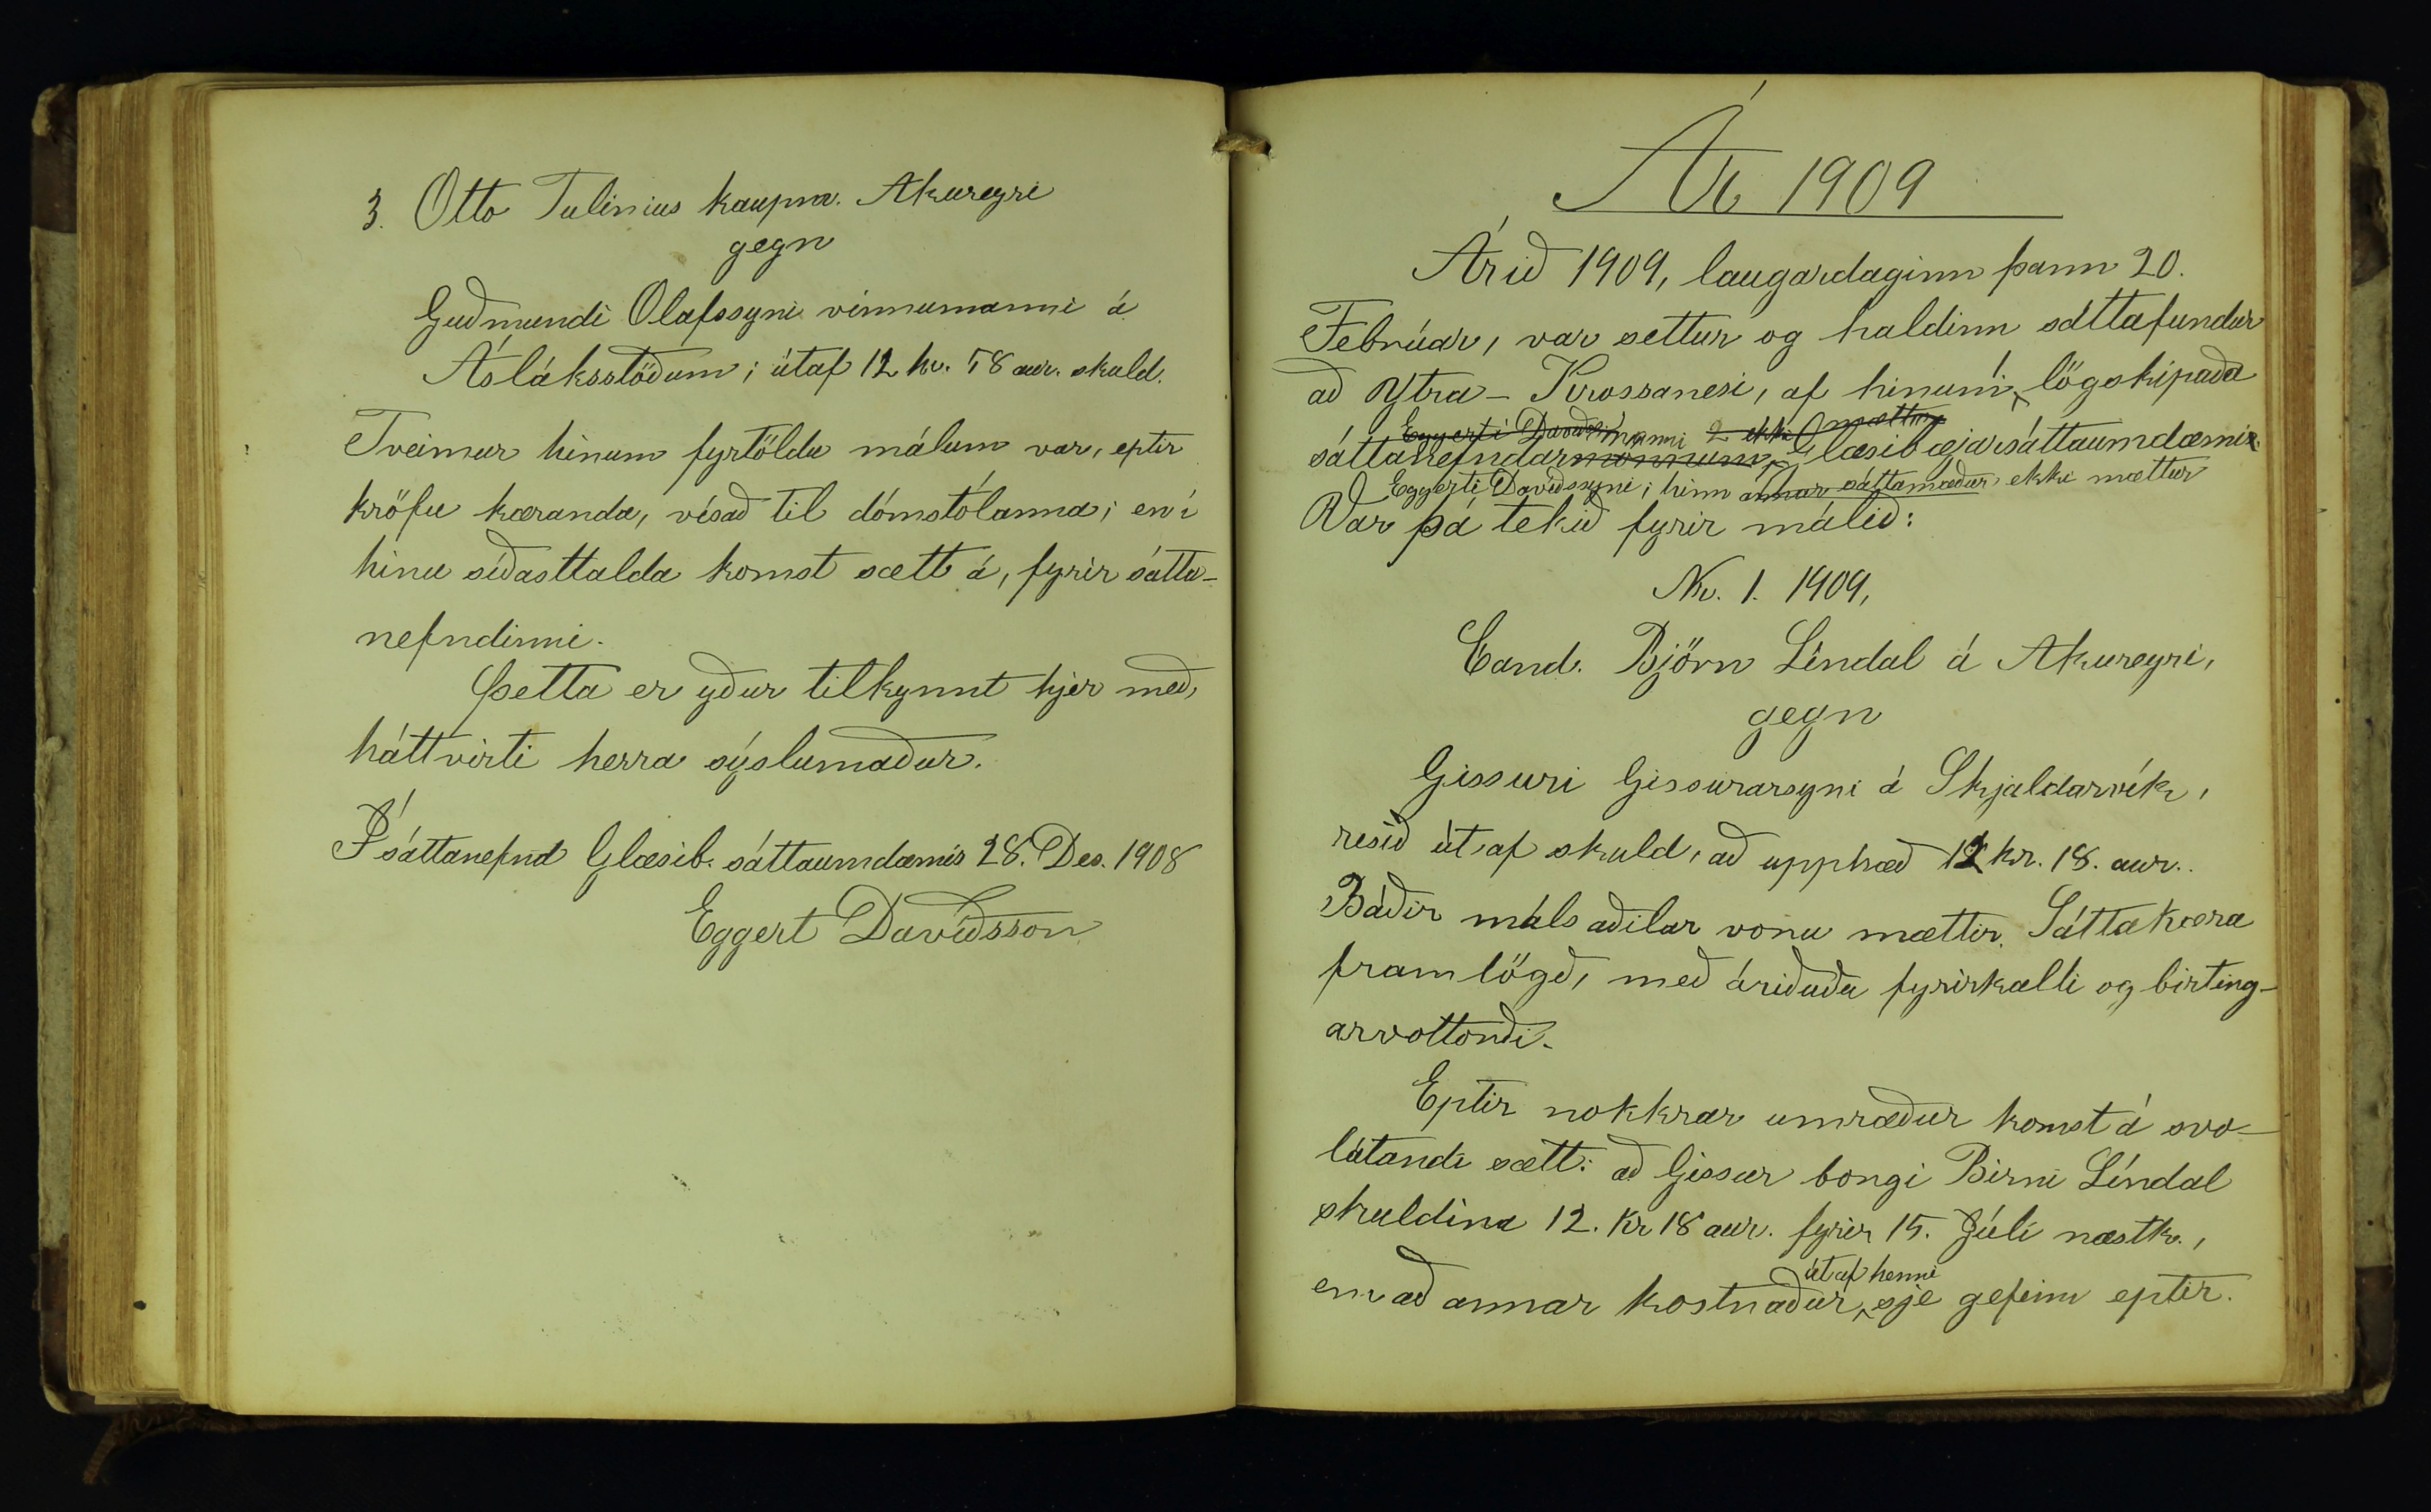 3. Otto Tulinius kaupm. Akureyri
gegn
Guðmundi Olafssyni vinnumanni á
Ásláksstöðum; útaf 12 kr. 58 aur. skuld.
Tveimur hinum fyrtöldu málum var, eptir
kröfu kæranda, vísað til dómstólanna; en í
hinu síðasttalda komst sætt á, fyrir sátta-
nefndinni.
Þetta er yður tilkynnt hjer með,
háttvirti herra sýslumaður.
Í sáttanefnd Glæsib. sáttaumdæmis 28. Des. 1908
Eggert Davíðsson
Ár 1909
Árið 1909, laugardaginn þann 20.
Febrúar, var settur og haldinn sáttafundur
að Ytra-Krossanesi, af hinum lögskipaða
Eggerti Davíðs manni 2 ekki mættur
sáttanefndarmönnum Glæsibæjarsáttaumdæmis
Eggerti Davíðssyni; hinn annar sáttamaður ekki mættur
Var þá tekið fyrir málið:
Nr. 1. 1909,
Cand. Björn Líndal á Akureyri,
gegn
Gissuri Gissurarsyni á Skjaldarvík,
resið út af skuld, að upphæð 12 kr. 18. aur.
Báðir málsaðilar voru mættir. Sáttakæra
framlögð, með árituðu fyrirkalli og birting-
arvottorði.
Eptir nokkrar umræður komst á svo-
látandi sætt: að Gissur borgi Birni Líndal
skuldina 12. kr 18 aur. fyrir 15. Júlí næstk.,
en að annar kostnaður útaf henni sje gefinn eptir.